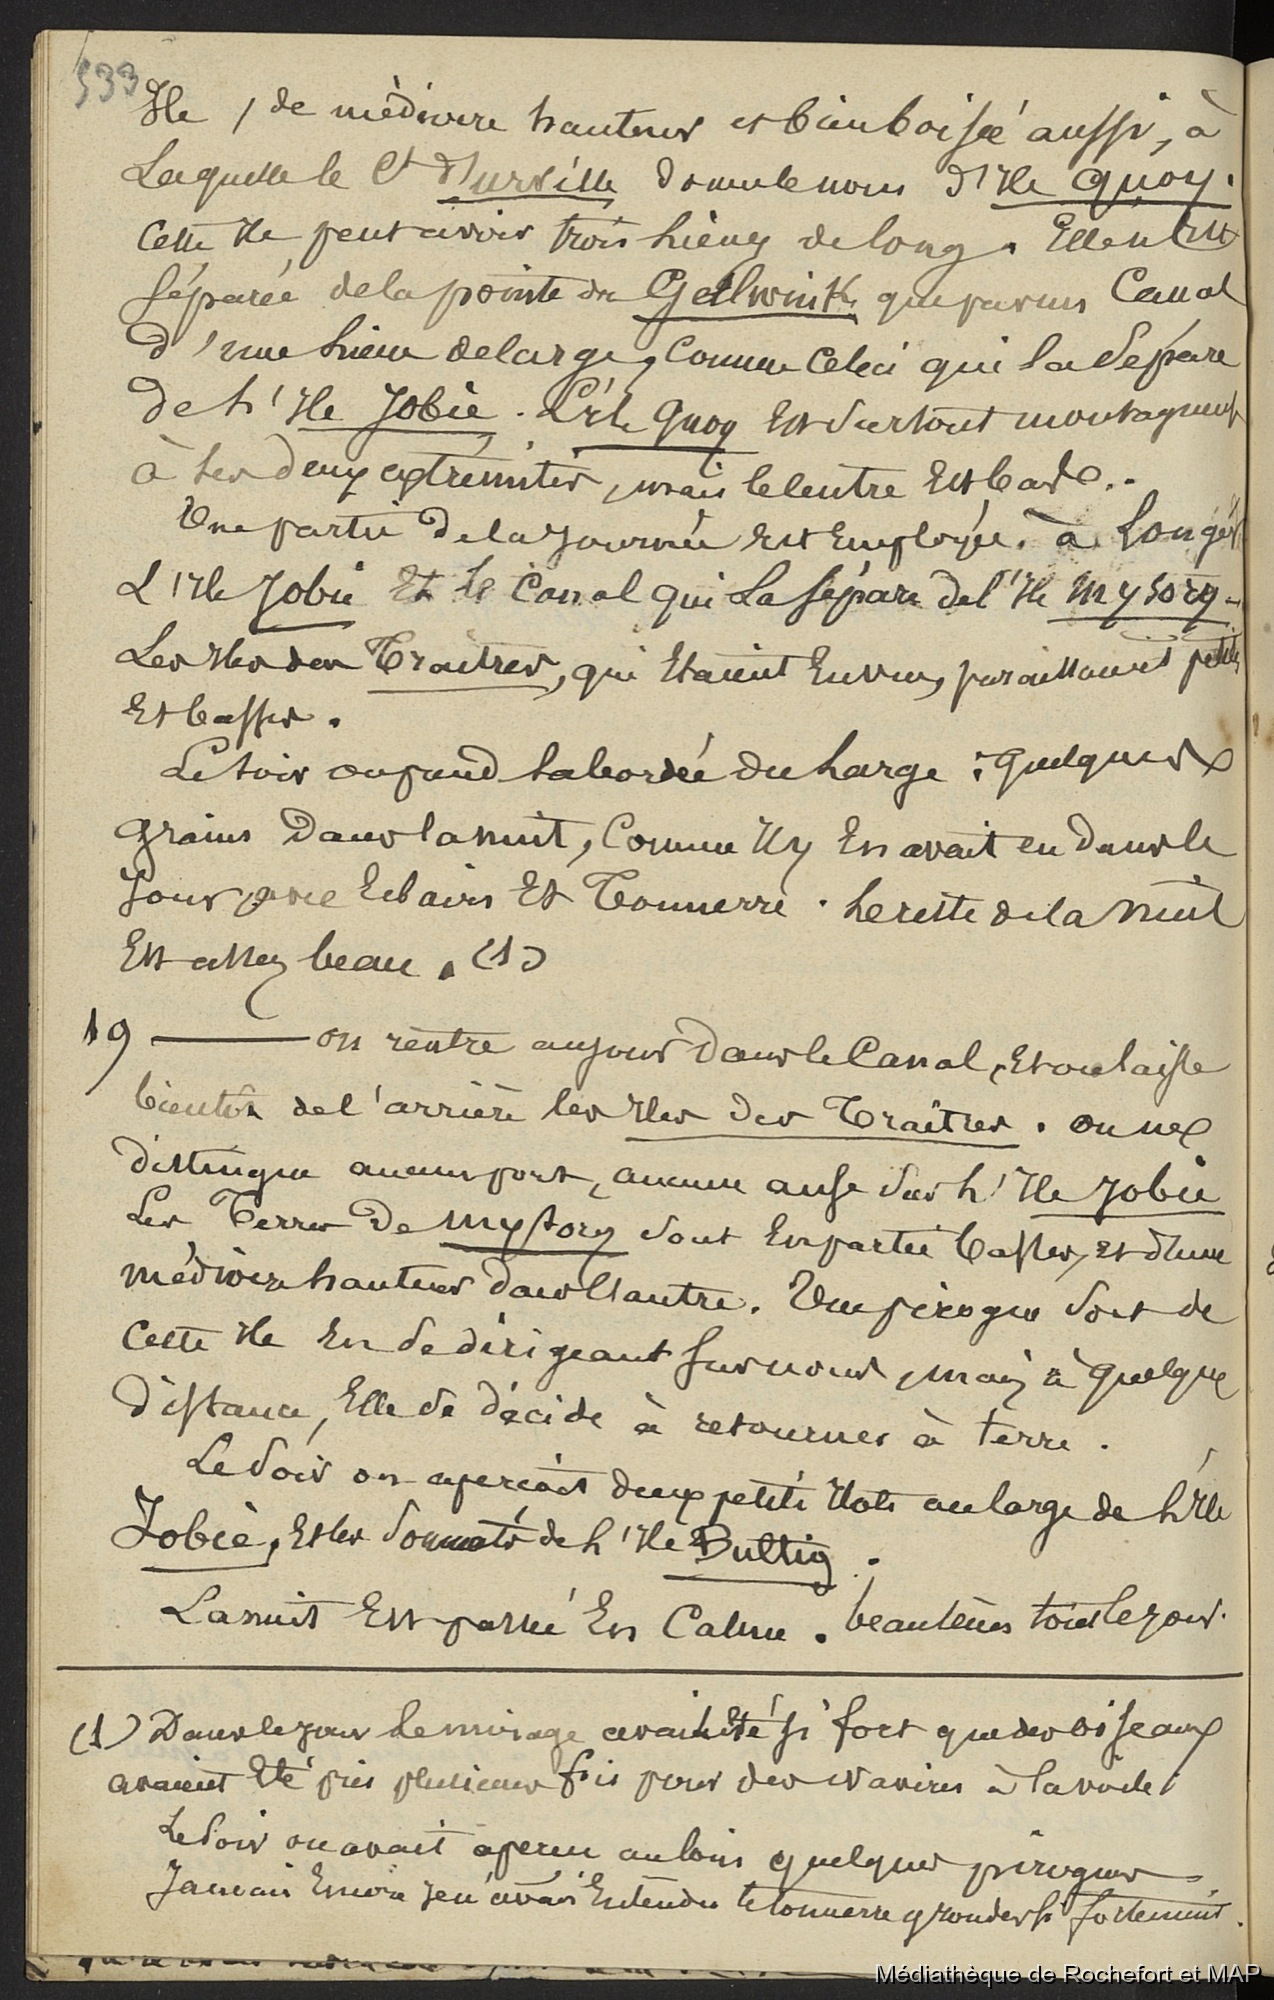 533
Ile, de médiocre hauteur et bien boisée aussi, à
Laquelle le Ct D'urville donne le nom d'Ile Quoy.
Cette Ile peut avoir trois lieues de long. Elle n'est
séparée de la pointe de Geelwink que par un Canal
d'une lieue de large, Comme Celui qui la Sépare
de l'Ile Jobie. L'île Quoy Est surtout montagneuse
à ses deux extrémités, mais le Centre Est bas.
Une partie de la journée est Employée à Longer
L'Ile Jobie Et le Canal qui La sépare de l'Ile Mysory.
Les Iles des Traitres, qui Etaient En vue, paraissaient petites
Et basses.
Le soir on prend la bordée du large ; quelques
grains dans la nuit, Comme Il y En avait eu dans le
jour avec Eclairs Et Tonnerre. le reste de la nuit
Est assez beau. (1)
19 ——— on rentre aujour dans le Canal, Et on laisse
bientôt de l'arrière les Iles des Traîtres. on ne
distingue aucun port, aucune anse sur l'Ile Jobie
Les Terres de Mysory sont En partie basses, et d'une
médiocre hauteur dans l'autre. Une pirogue sort de
Cette Ile En se dirigeant sur nous, mais à quelque
distance, Elle se décide à retourner à terre.
Le Soir on aperçoit deux petits Ilots au large de l'Ile
Jobie, Et les sommets de l'Ile Bultig.
La nuit Est passée En Calme. beau tems tout le jour.
(1) Dans le jour le mirage avait Eté si fort que des oiseaux
avaient Eté pris plusieurs fois pour des navires à la voile.
Le Soir on avait aperçu au loin quelques pirogues
Jamais Encore je n'avais Entendu le tonnerre gronder si fortement.
Médiathèque de Rochefort et MAP